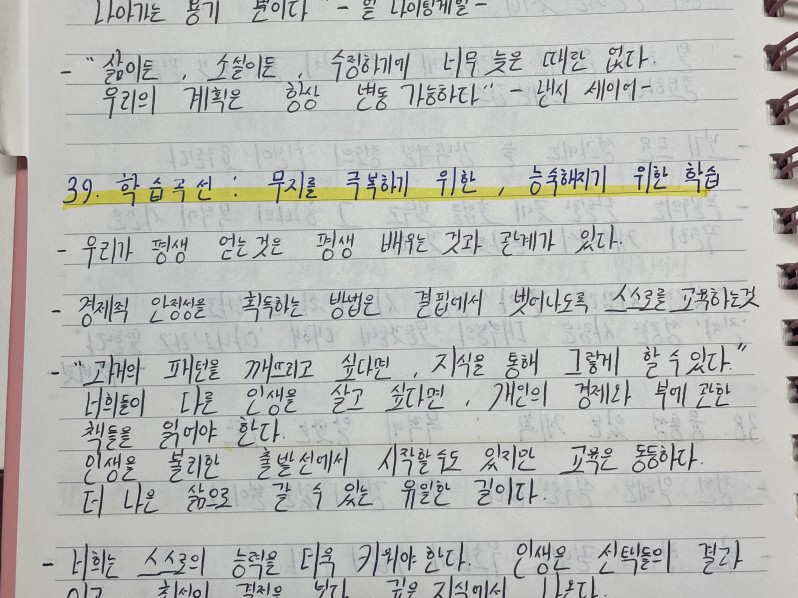 나아가는 용기 뿐이다" - 윌 나이팅게일 -
- "삶이든, 소설이든, 수정하기에 너무 늦은 때란 없다.
우리의 계획은 항상 변동 가능하다" - 낸시 세이어 -
39. 학습곡선 : 무지를 극복하기 위한, 능숙해지기 위한 학습
- 우리가 평생 얻는 것은 평생 배우는 것과 관계가 있다.
- 경제적 안정성을 획득하는 방법은 결핍에서 벗어나도록 스스로를 교육하는것
- "과거의 패턴을 깨뜨리고 싶다면, 지식을 통해 그렇게 할 수 있다."
너희들이 다른 인생을 살고 싶다면, 개인의 경제와 부에 관한
책들을 읽어야 한다.
인생을 불리한 출발선에서 시작할 수도 있지만 교육은 동등하다.
더 나은 삶으로 갈 수 있는 유일한 길이다.
- 너희는 스스로의 능력을 더욱 키워야 한다. 인생은 선택들의 결과
이고 최선의 결정은 보다 깊은 지식에서 나온다.